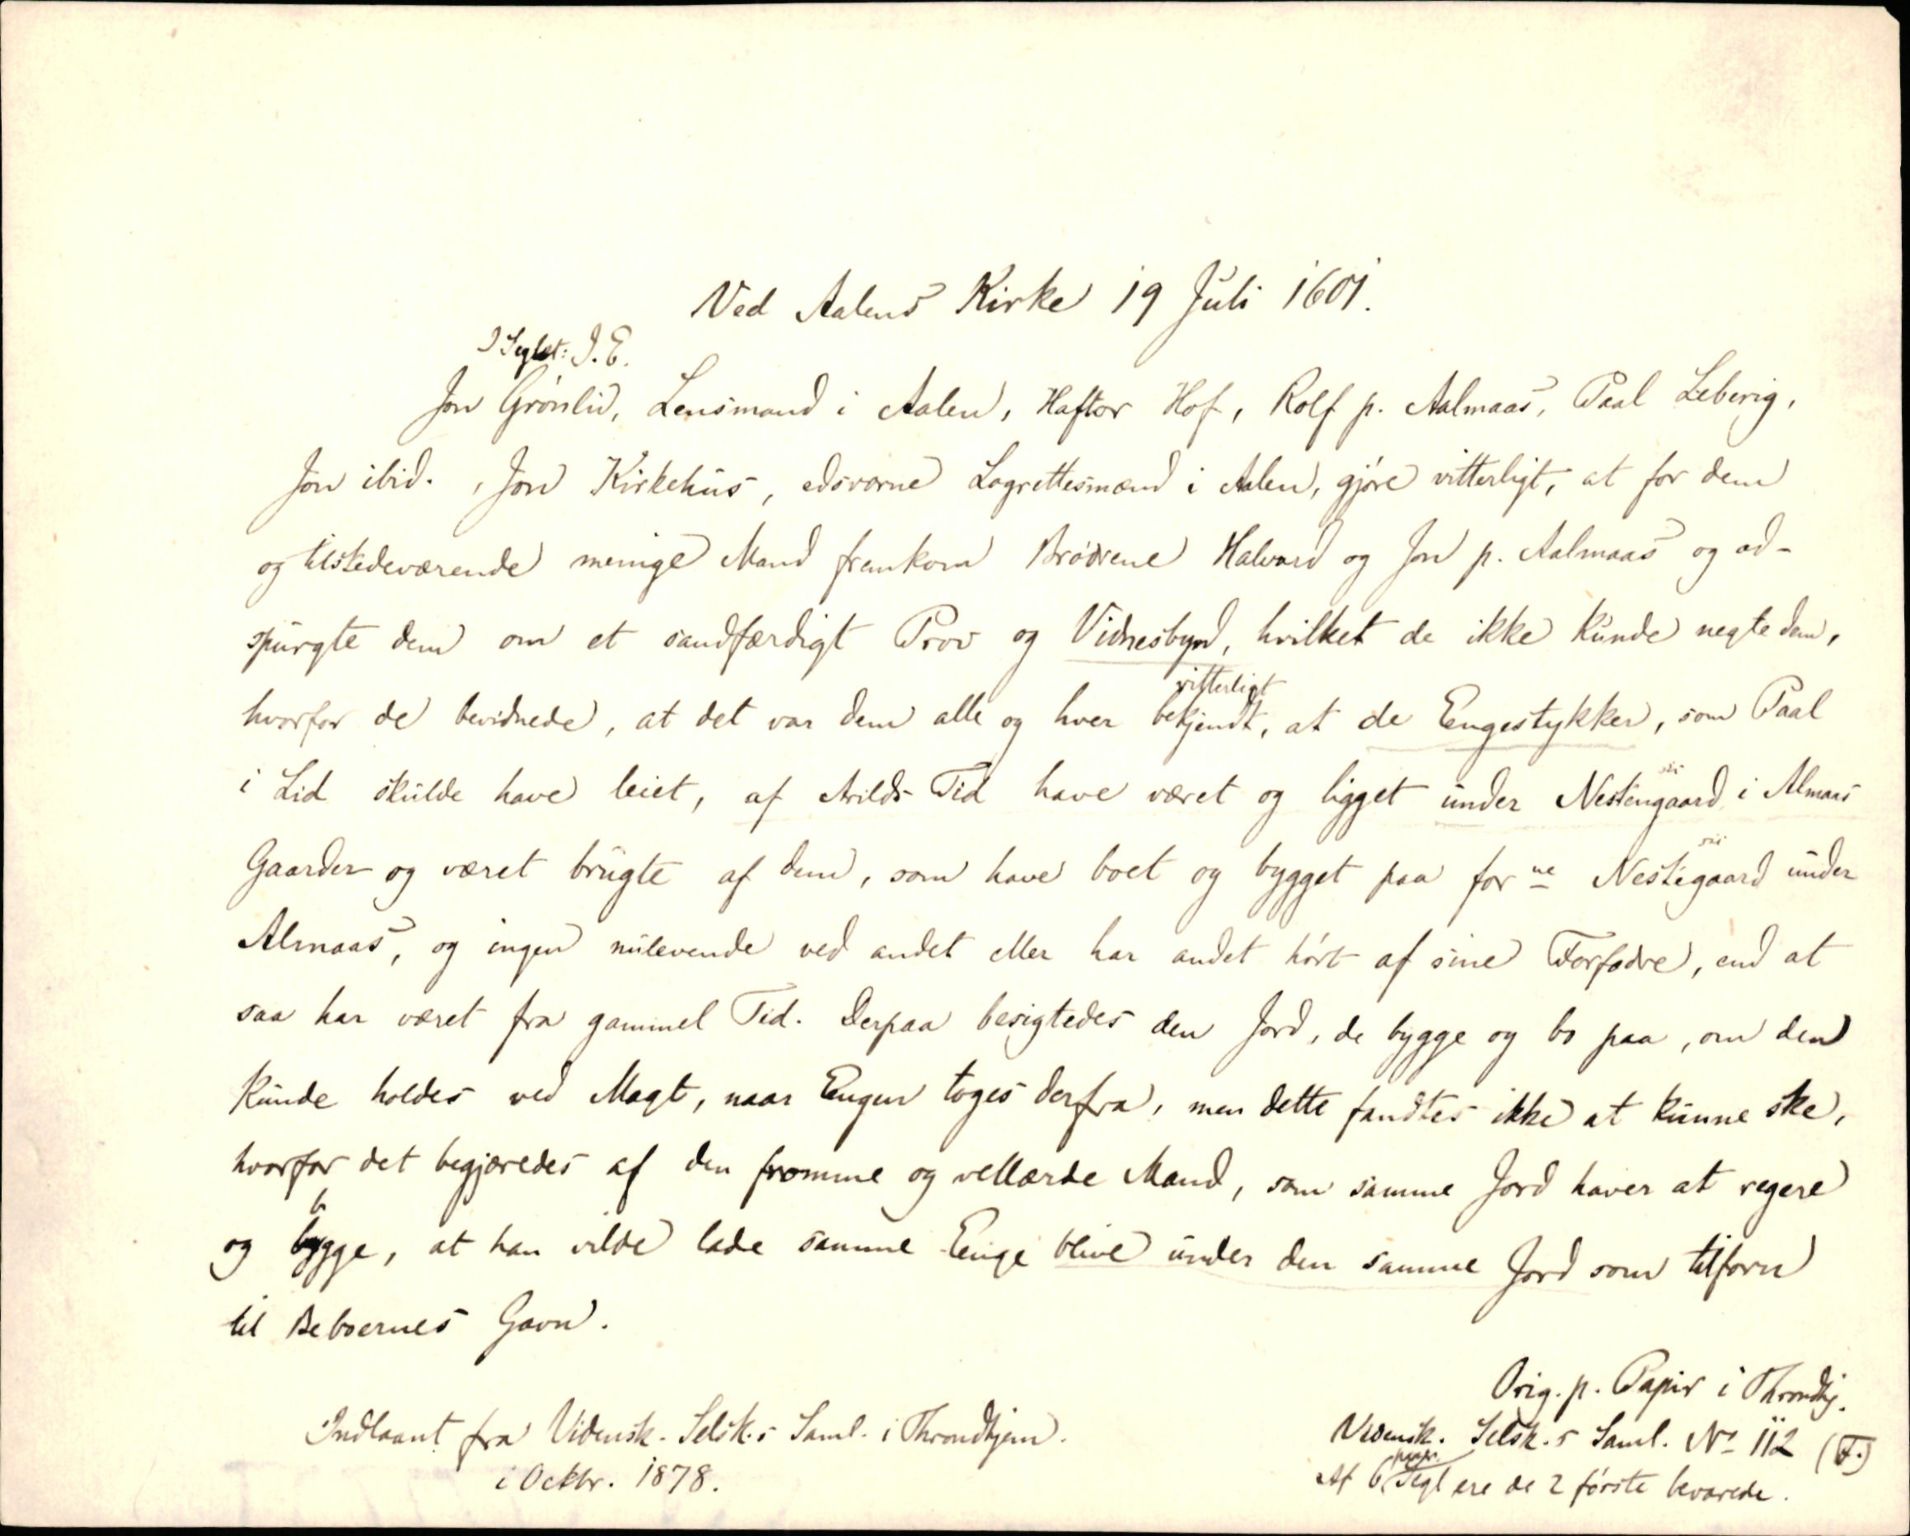 Ved Aalens Kirke 19 Juli 1601.
I Seglet: J. E.
Jon Grönlid, Lensmand i Aalen, Haftor Hof, Rolf p. Aalmaas, Paal Leberig,
Jon ibid., Jon Kirkehus, edsvorne Lagrettesmænd i Aalen, gjöre vitterligt, at for dem
og tilstedeværende menige Mand fremkom Brödrene Halvard og Jon p. Aalmaas og ad-
spurgte dem om et sandfærdigt Prov og Vidnesbyrd, hvilket de ikke kunde negte dem,
vitterligt
hvorfor de bevidnede, at det var dem alle og hver bekjendt, at de Engestykker, som Paal
i Lid skulde have leiet, af Arilds Tid have været og ligget under Nestengaard i Almaas
Gaarder og været brugte af dem, som have boet og bygget paa for ne Nestegaard under
Almaas, og ingen nulevende ved andet eller har andet hört af sine Forfædre, end at
saa har været fra gammel Tid. Derpaa besigtedes den Jord, de bygge og bo paa, om den
kunde holdes ved Magt, naar Engen toges derfra, men dette fandtes ikke at kunne ske,
hvorfor det begjæredes af den fromme og vellærde Mand, som samme Jord haver at regere
b
og bygge, at han vilde lade samme Enge blive under den samme Jord som tilforn
til Beboernes Gavn.
Orig. p. Papir i Throndhj.
Vidensk. Selsk.s Saml. No 112 (F.)
papir.
Af 6 Segl ere de 2 förste bevarede.
Indlaant fra Vidensk. Selsk.s Saml. i Throndhjem.
i Octbr. 1878.